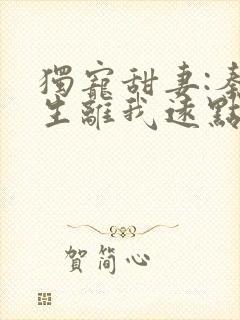 獨寵甜妻:秦
生離我遠點
賀簡心